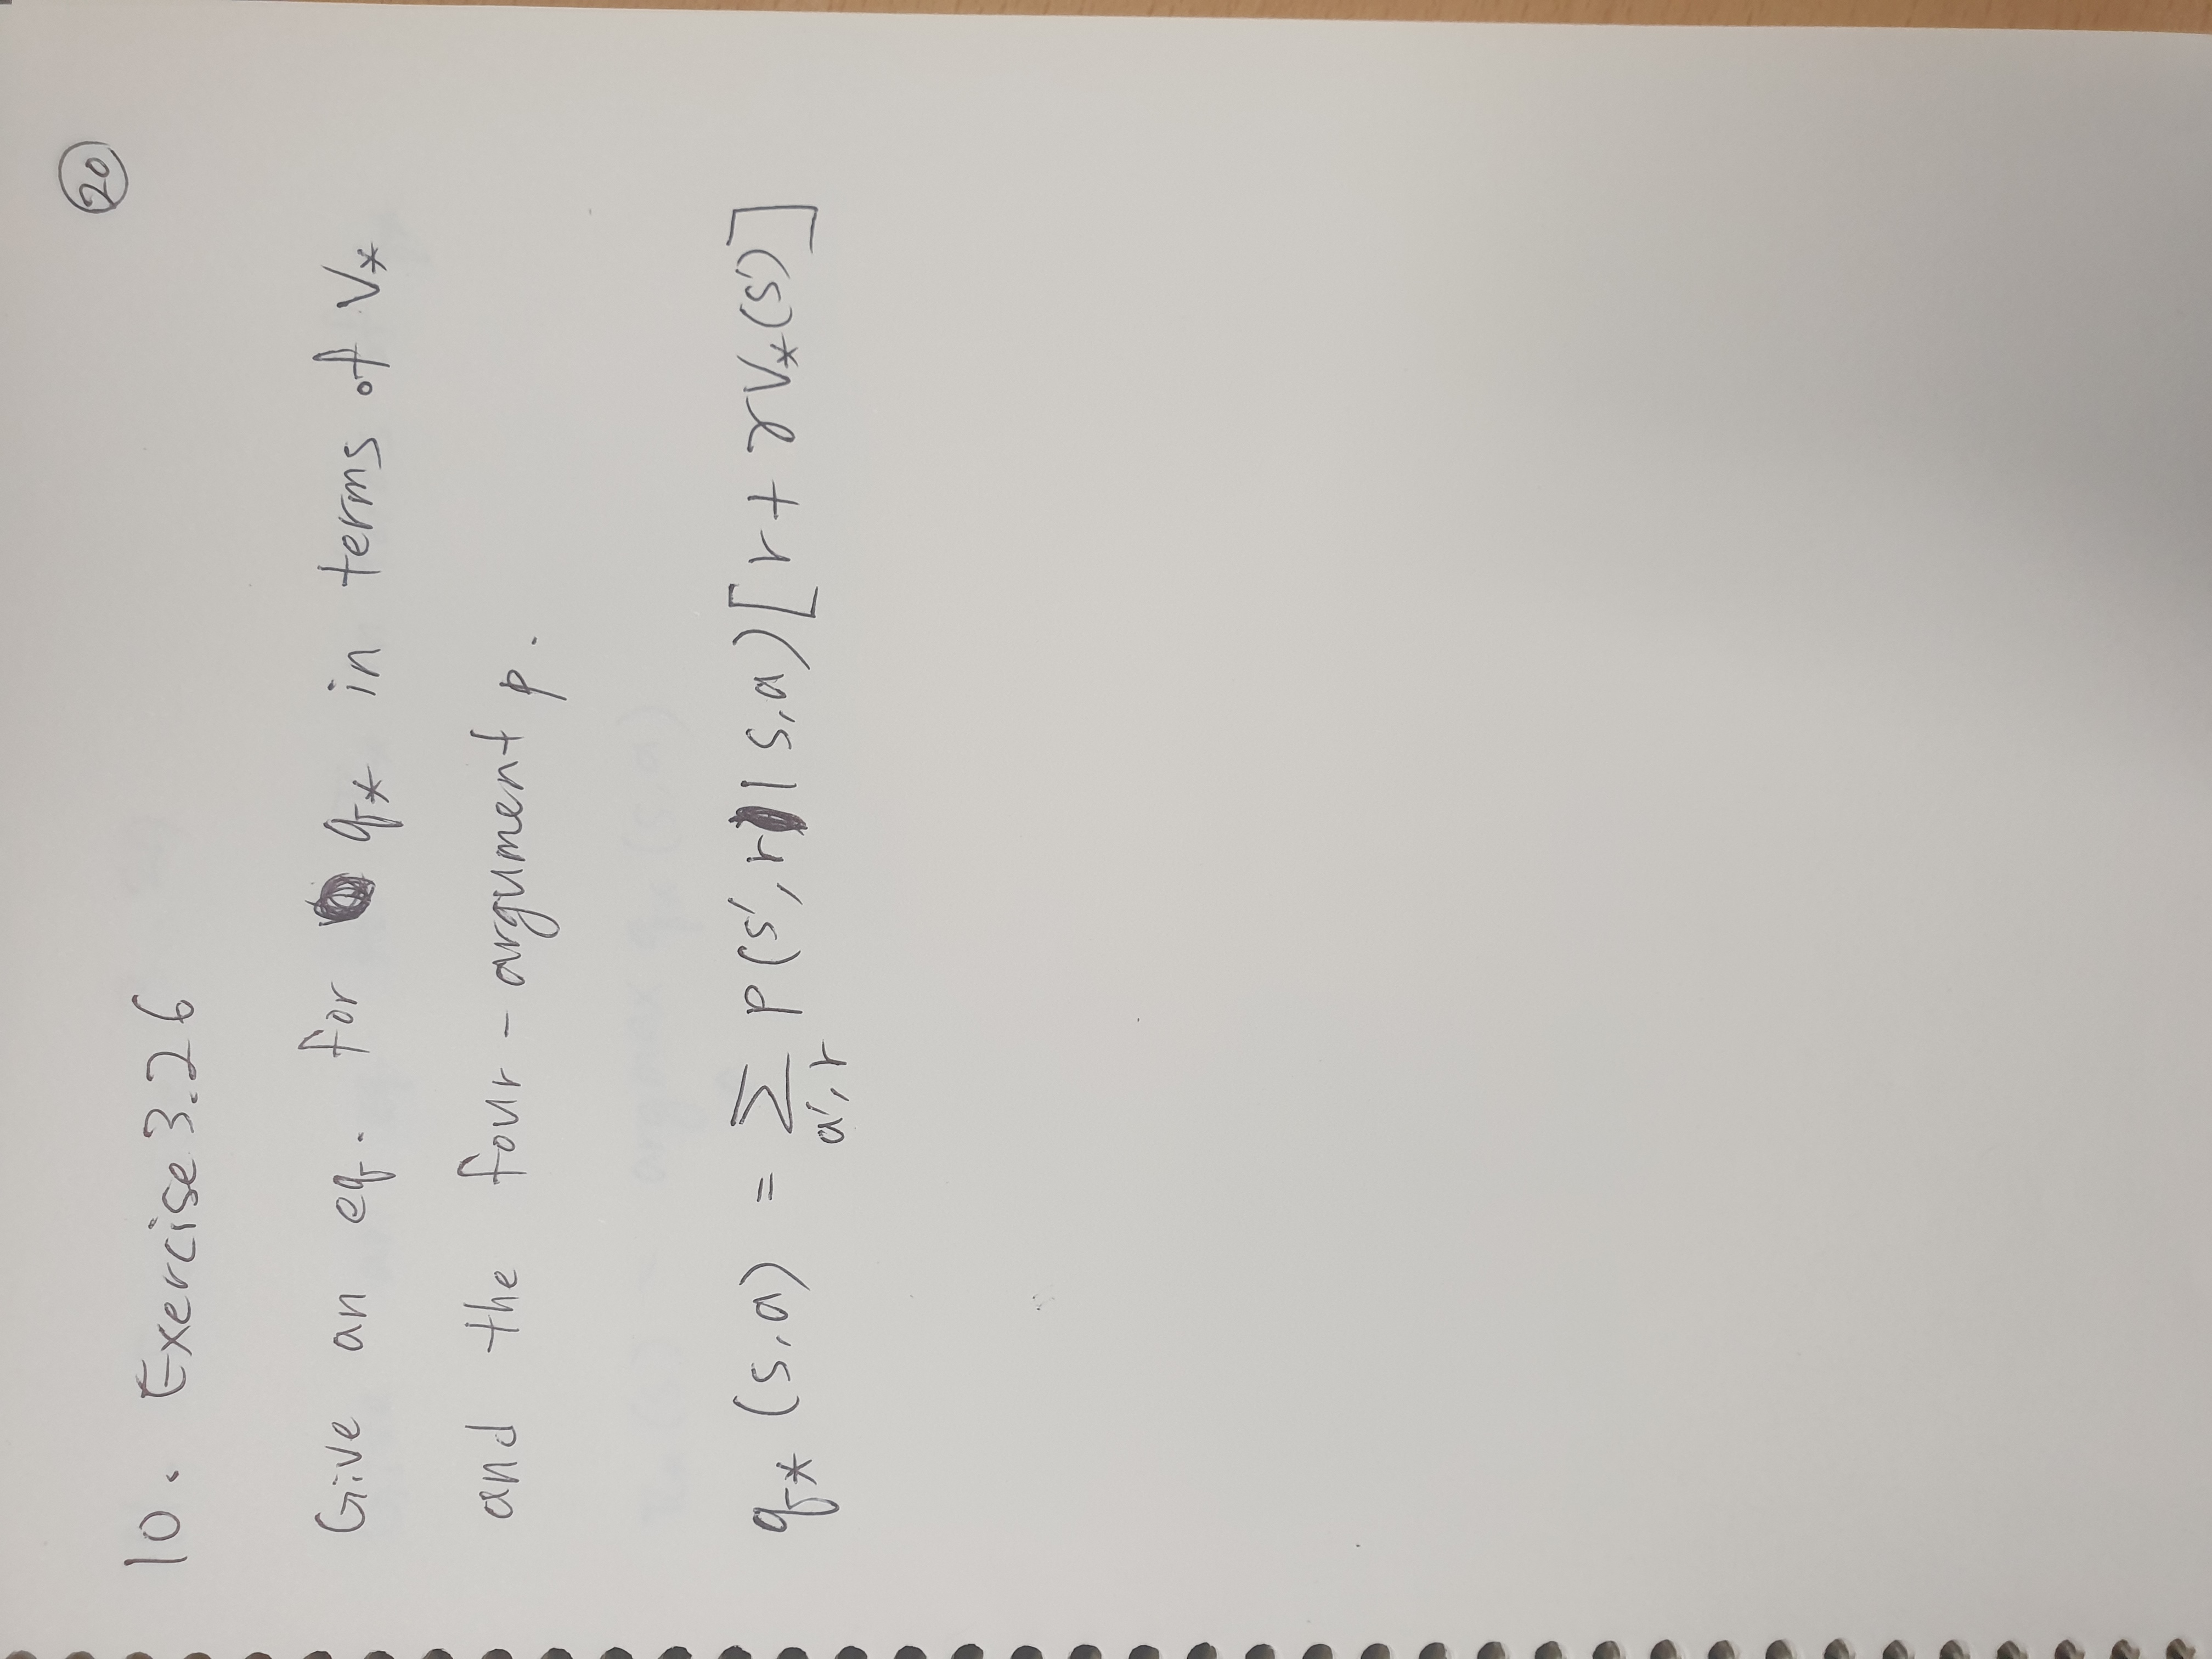 20
10. Exercise 3.26
Give an eq. for q* in terms of V*
and the four-argument p.
q*(s,a) = Σ p(s',r|s,a)[r+γV*(s')]
a',r